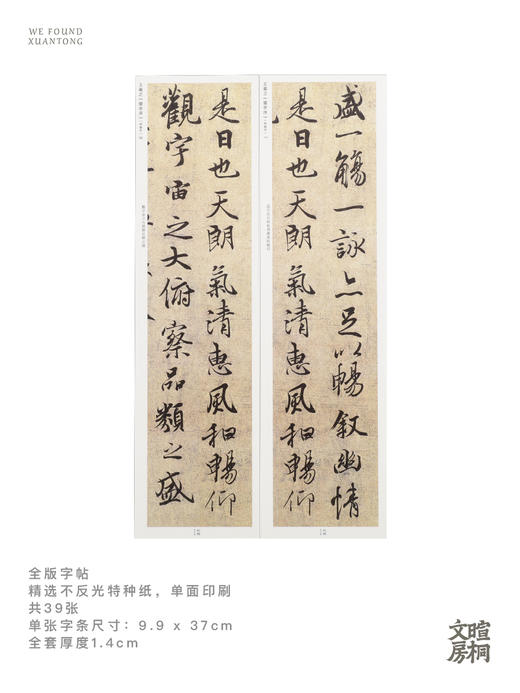 WE FOUND
XUANTONG
盛一觴一詠亦足以暢叙幽情
是日也天朗氣清惠風和暢仰
是日也天朗氣清惠風和暢仰
觀宇宙之大俯察品類之盛
全版字帖
精选不反光特种纸，单面印刷
共39张
单张字条尺寸：9.9 x 37cm
全套厚度1.4cm
暄桐
文房